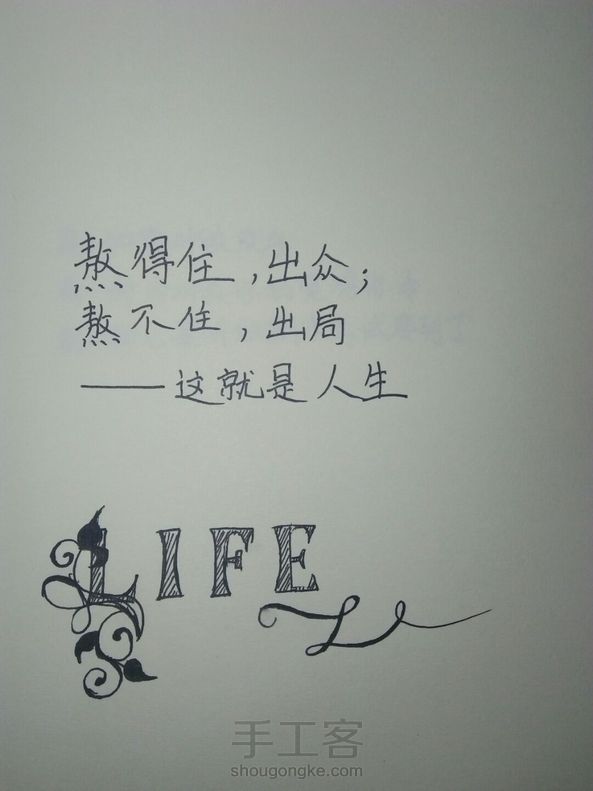 熬得住,出众;
熬不住,出局
——这就是人生
LIFE
手工客
shougongke.com